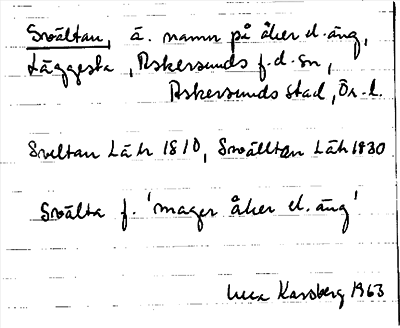 Swältan, ä. namn på åker el. äng,
Läggesta, Askersunds f.d. sn,
Askersunds stad, Ör. l.
Sveltan Läh 1810, Swälltan Läh 1830
Swälta f. 'mager åker el. äng'
Karsberg 1963